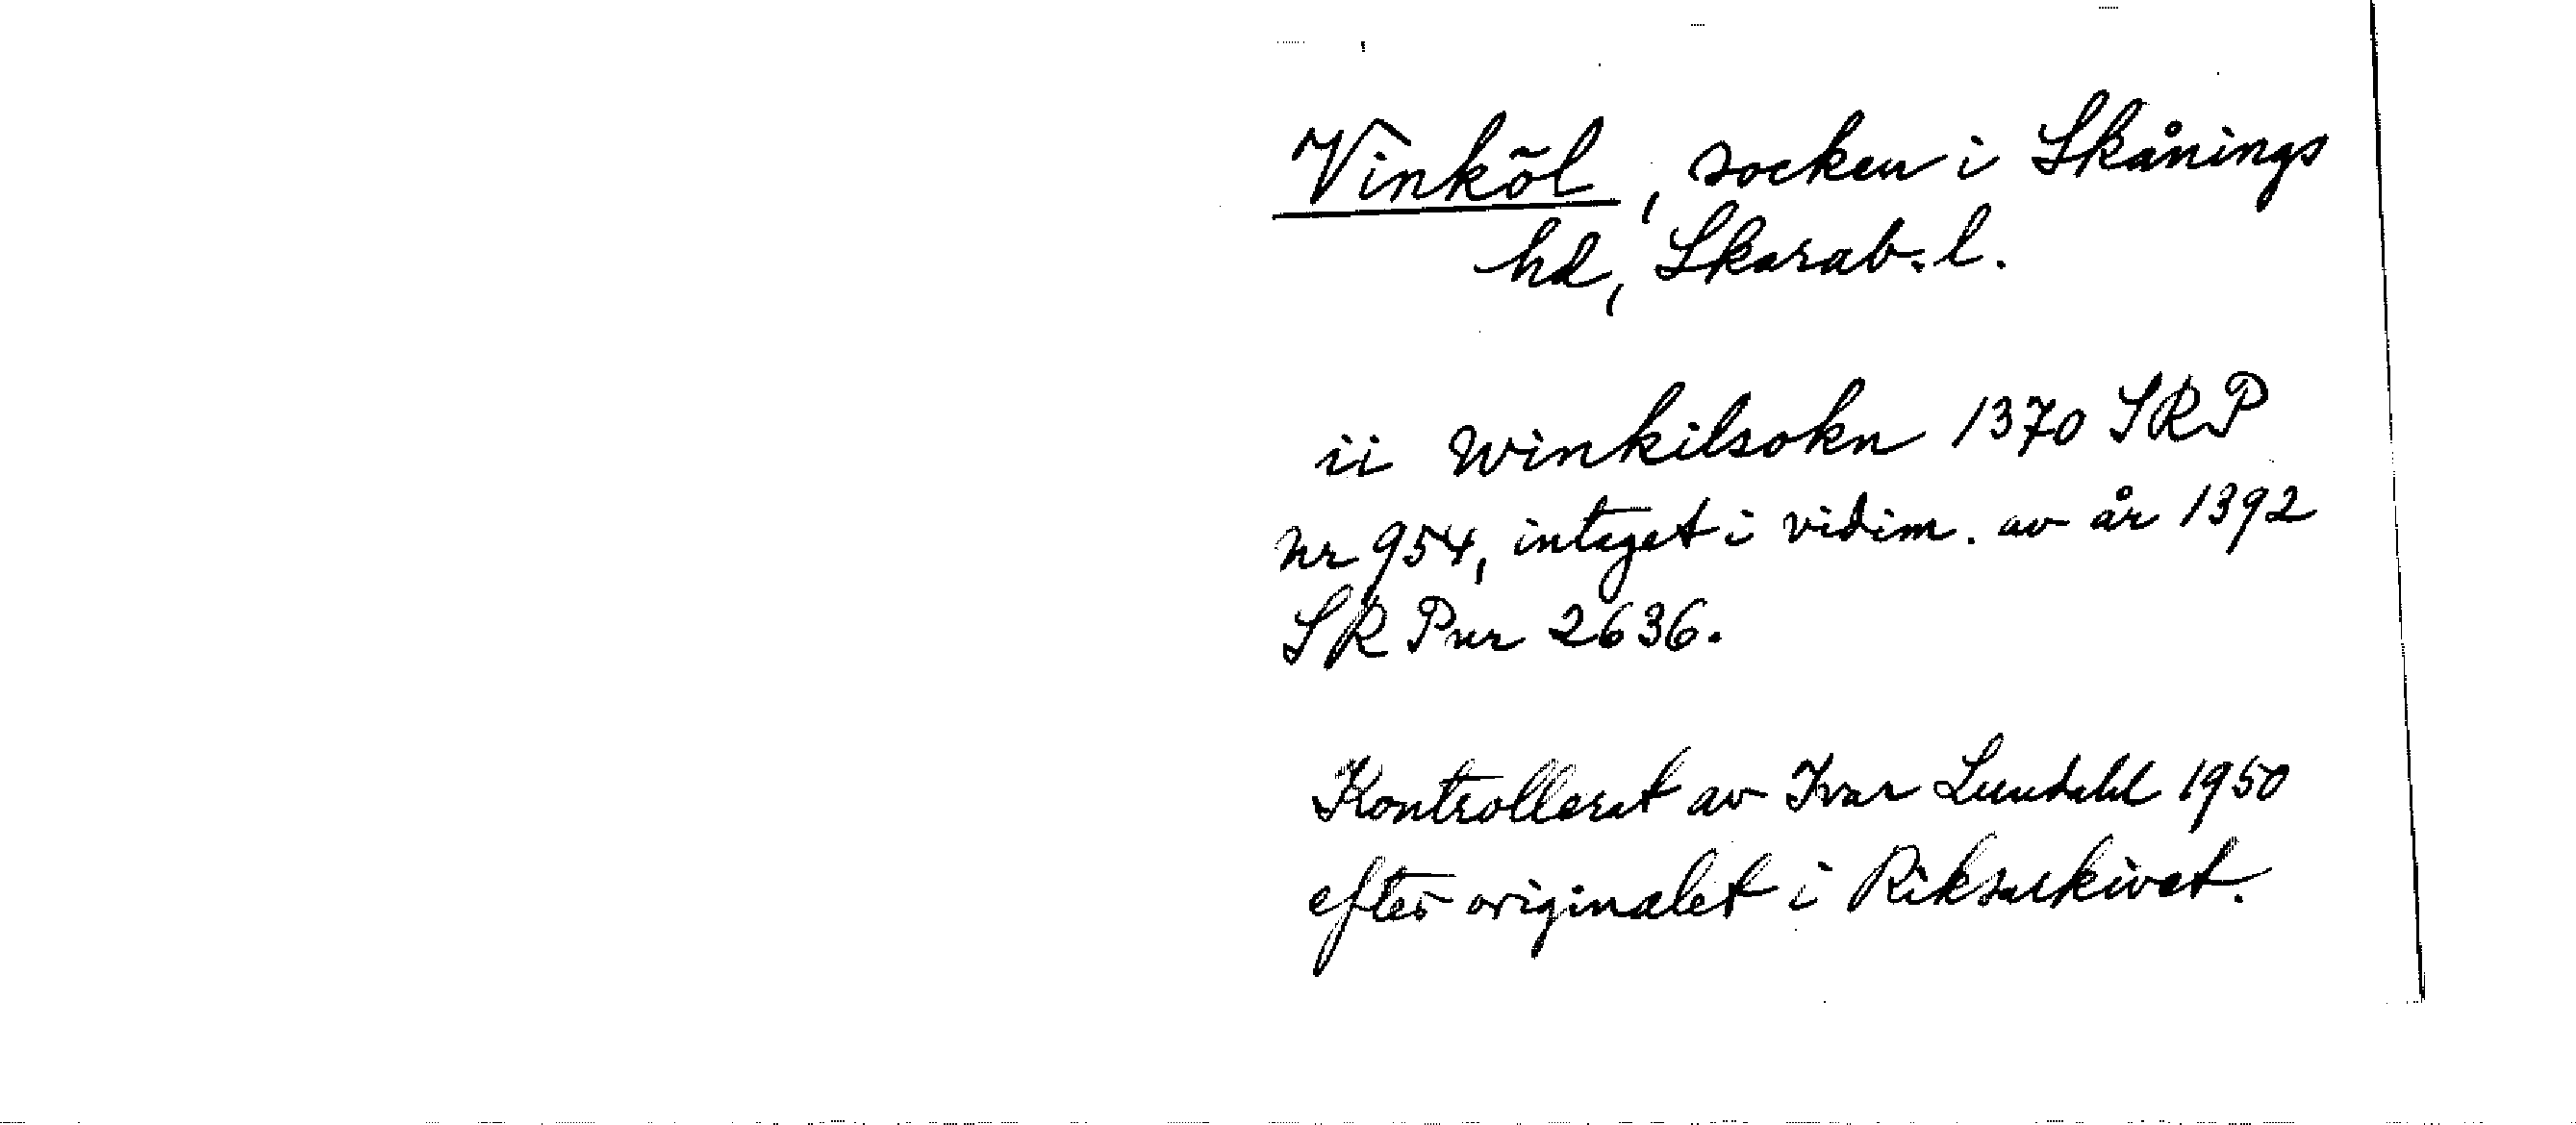 Vinköl, socken i Skånings
hd, Skarab. l.
ii Winkilsokn 1370 SRP
nr 954, intaget i vidim. av år 1392
SRP nr 2636.
Kontrollerat av Ivar Lundahl 1950
efter originalet i Riksarkivet.